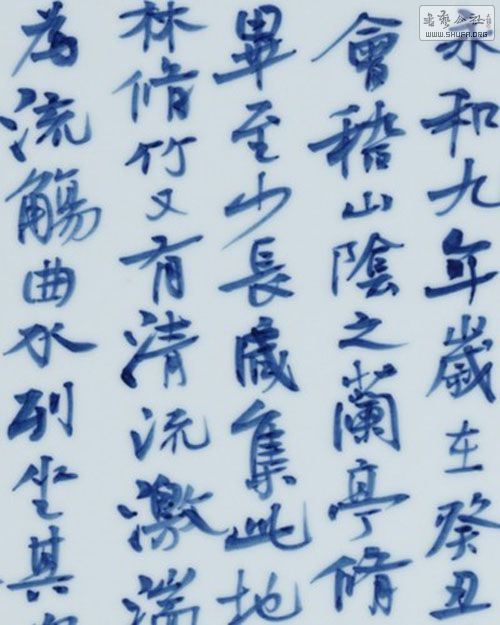 永和九年歲在癸丑
會稽山陰之蘭亭脩
畢至少長咸集此地
林脩竹又有清流激湍
為流觴曲水列坐其
書藝公社
WWW.SHUFA.ORG